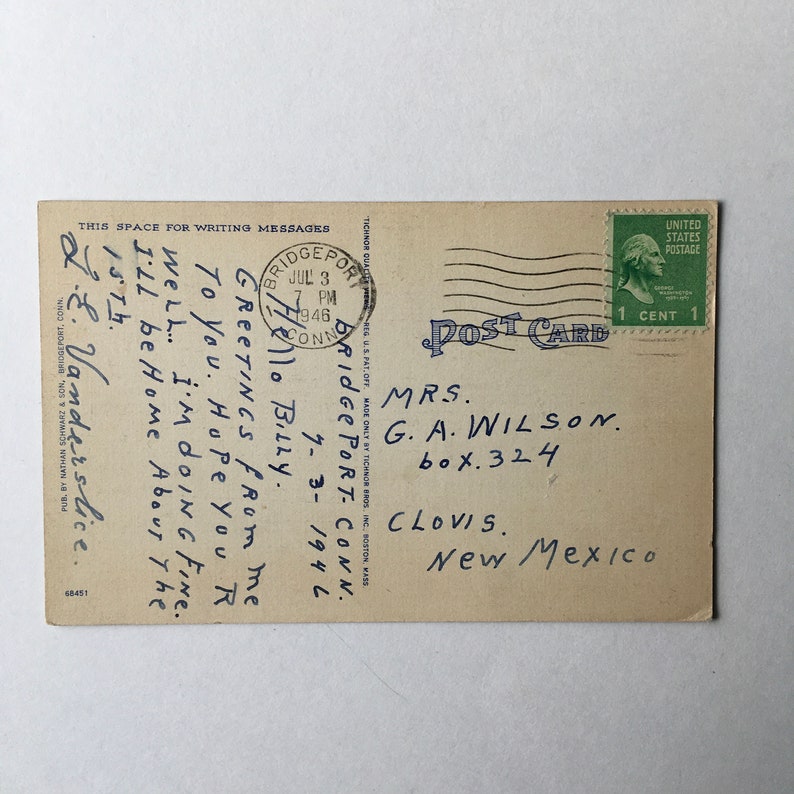 THIS SPACE FOR WRITING MESSAGES
BRIDGEPORT CONN.
7-3-1946
Hello Billy.
GREETINGS FROM ME
TO YOU. HOPE YOU R
WELL. I'M DOING FINE.
I'll be HOME ABOUT THE
15Th.
L. E. Vanderslice.
PUB. BY NATHAN SCHWARZ & SON, BRIDGEPORT, CONN.
68451
TICHNOR QUALITY VIEWS REG. U.S. PAT. OFF. MADE ONLY BY TICHNOR BROS. INC., BOSTON, MASS.
BRIDGEPORT
JUL 3
7 PM
1946
CONN.
UNITED
STATES
POSTAGE
GEORGE
WASHINGTON
1 CENT 1
POST CARD
MRS.
G. A. WILSON.
box. 324
CLOVIS.
NEW MEXICO